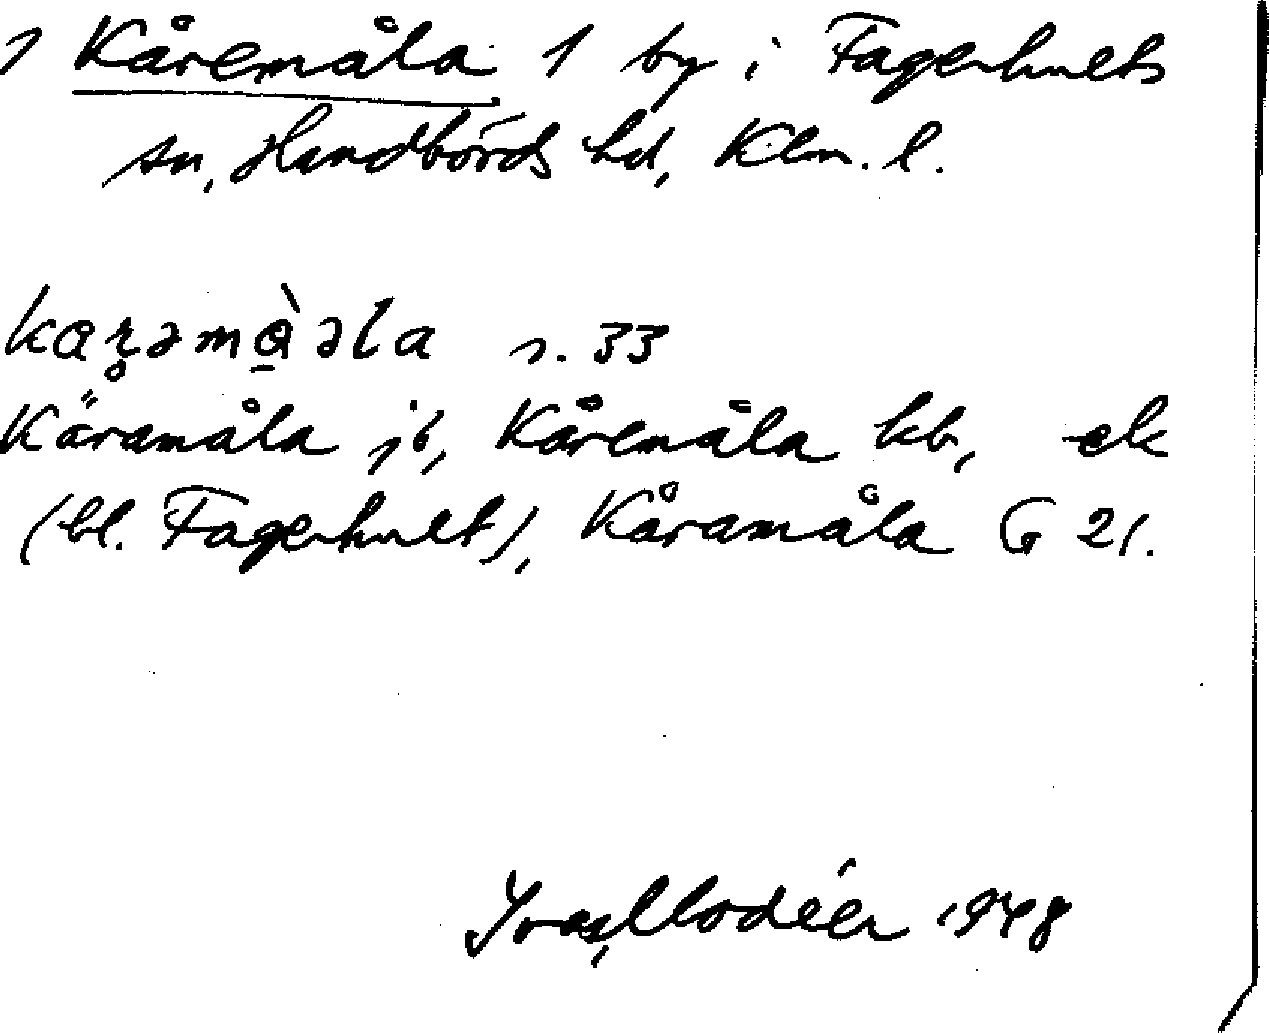 1 Kåremåla 1 by i Fagerhults
sn, Handbörds hd, Klm. l.
s. 33
Käramåla jb, Kåremåla kb, ek
(bl. Fagerhult), Kåramåla G 21.
Ivar Modéer 1948